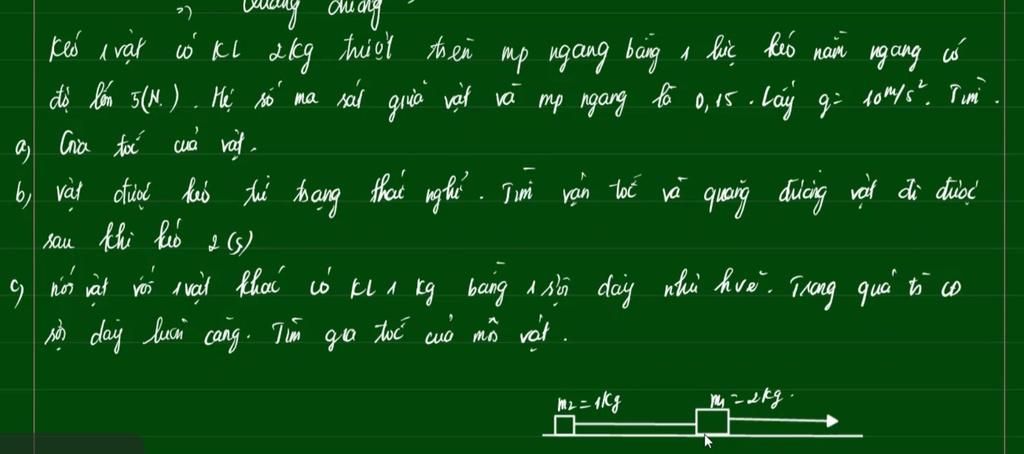 Quãng đường
Kéo 1 vật có KL 2kg trượt trên mp ngang bằng 1 lực kéo nằm ngang có
độ lớn 5(N.). Hệ số ma sát giữa vật và mp ngang là 0,15. Lấy g= 10m/s². Tìm.
a, Gia tốc của vật.
b, vật được kéo từ trạng thái nghỉ. Tìm vận tốc và quãng đường vật đi được
sau khi kéo 2(s)
c, nối vật với 1 vật khác có KL 1 kg bằng 1 sợi dây như hvẽ. Trong quá tr CĐ
sợi dây luôn căng. Tìm gia tốc của mỗi vật.
m₂=1Kg m₁=2kg.